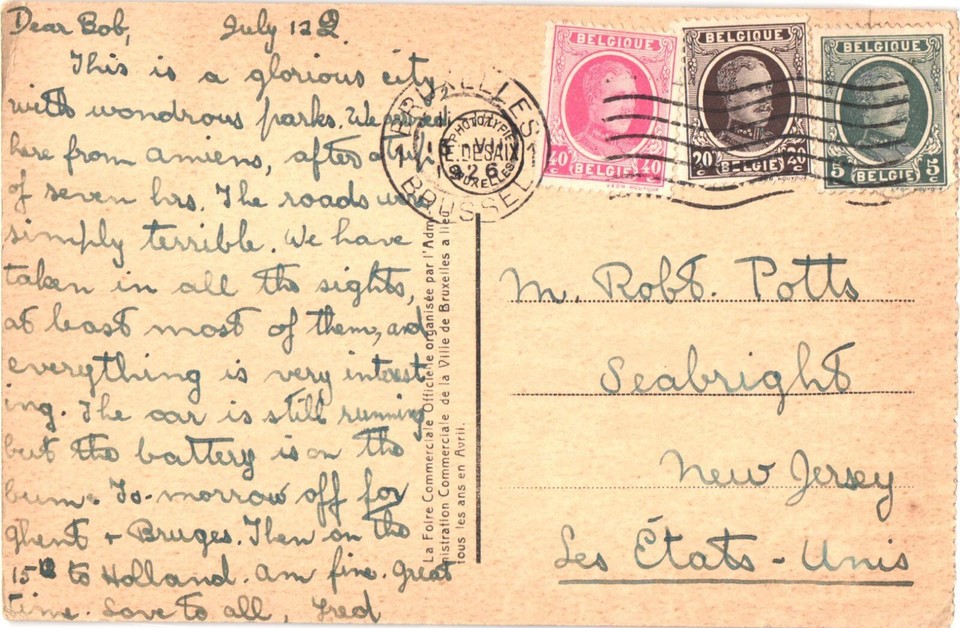 Dear Bob, July 12
This is a glorious city
with wondrous parks. We arrived
here from Amiens, after a trip
of seven hrs. The roads were
simply terrible. We have
taken in all the sights,
at least most of them, and
everything is very interest-
ing. The car is still running
but the battery is on the
bum. To-morrow off for
Ghent + Bruges. Then on the
15th to Holland. Am fine. Great
time. Love to all, Fred
BRUXELLES 1
1 BRUSSEL 1
26
PHOTOTYPIE
E. DESAIX
BRUXELLES
BELGIQUE
40c 40c
BELGIË
BELGIQUE
20c 20c
BELGIË
BELGIQUE
5c 5c
BELGIË
La Foire Commerciale Officielle organisée par l'Adm
nistration Commerciale de la Ville de Bruxelles a lieu
tous les ans en Avril.
M. Robt. Potts
Seabright
New Jersey
Les États-Unis